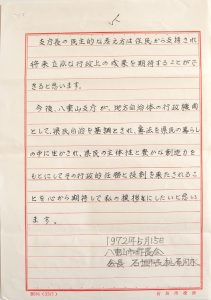 支庁長の民主的な考え方は住民から支持され
将来立派な行政上の成果を期待することがで
きると思います。
今後、八重山支庁が、地方自治体の行政機関
として、県民自治を基調とされ、憲法を県民の暮らし
の中に生かされ、県民の主体性と豊かな創造力を
もとにしてその行政的任務と役割を果たされるこ
とを心から期待して私の挨拶にしたいと思いま
す。
1972年5月15日
八重山市町長会
会長 石垣市長